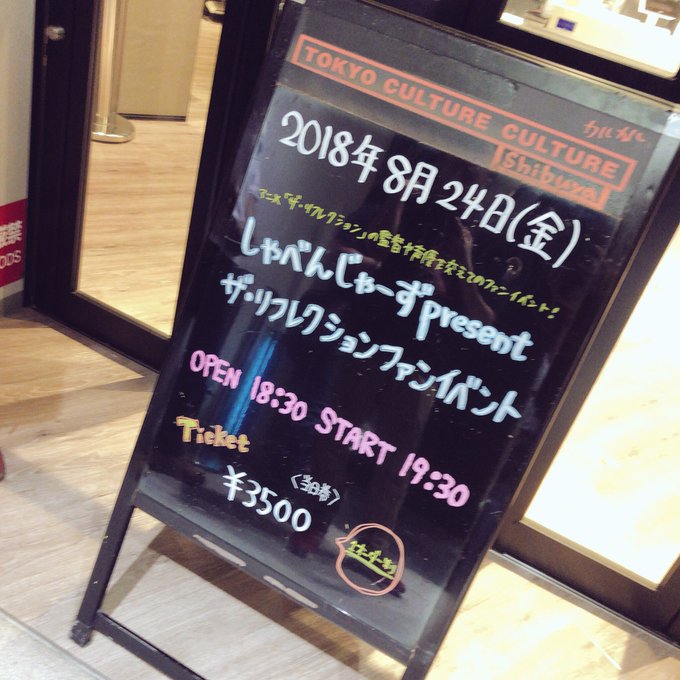 TOKYO CULTURE CULTURE
Shibuya
カルカル
2018年8月24日(金)
アニメ「ザ・リフレクション」の監督や声優を交えてのファンイベント!
しゃべんじゃーずpresent
ザ・リフレクションファンイベント
OPEN 18:30 START 19:30
Ticket
<当日券>
¥3500